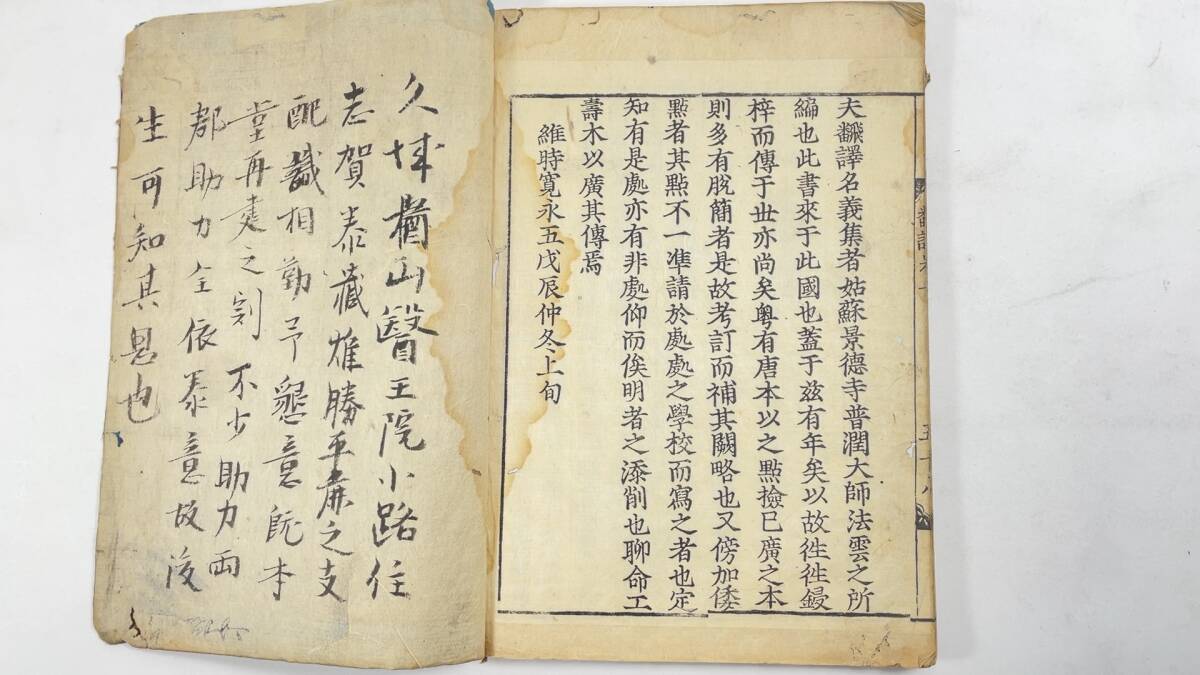 夫飜譯名義集者姑蘇景德寺普潤大師法雲之所
編也此書來于此國也蓋于茲有年矣以故徃徃鋟
梓而傳于世亦尚矣粤有唐本以之點撿已廣之本
則多有脫簡者是故考訂而補其闕略也又傍加倭
點者其點不一準請於處處之學校而寫之者也定
知有是處亦有非處仰而俟明者之添削也聊命工
壽木以廣其傳焉
維時寛永五戊辰仲冬上旬
五十八
山醫王院小路住
志賀泰藏雄勝平鹿之支
配識相勤予懇意既本
堂再之刻不少助力両
郡助力全依泰意故後
生可知其恩也